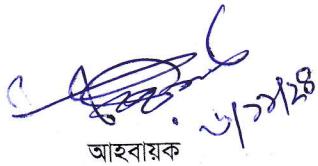 ৬/১১/২৪
আহবায়ক